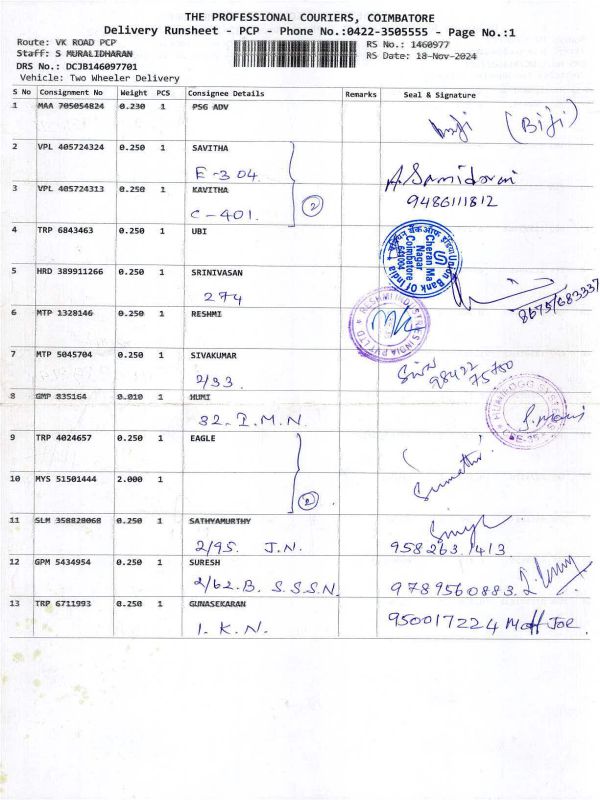 THE PROFESSIONAL COURIERS, COIMBATORE
Delivery Runsheet - PCP - Phone No.:0422-3505555 - Page No.:1
Route: VK ROAD PCP
Staff: S MURALIDHARAN
DRS No.: DCJB146097701
Vehicle: Two Wheeler Delivery
RS No.: 1460977
RS Date: 18-Nov-2024
S No Consignment No Weight PCS Consignee Details Remarks Seal & Signature
1 MAA 705054824 0.230 1 PSG ADV
(Biji)
2 VPL 405724324 0.250 1 SAVITHA
E-304.
3 VPL 405724313 0.250 1 KAVITHA
C-401. 2
9486111812
4 TRP 6843463 0.250 1 UBI
Union Bank Of India
Cheran Ma Nagar
Coimbatore
641004
5 HRD 389911266 0.250 1 SRINIVASAN
274
6 MTP 1328146 0.250 1 RESHMI
RESHMI INDUSTRIES INDIA PVT LTD
7 MTP 5045704 0.250 1 SIVAKUMAR
2/33.
98422
75750
8 GMP 835164 0.010 1 HUMI
32. I.M.N.
9 TRP 4024657 0.250 1 EAGLE
10 MYS 51501444 2.000 1
2
Sumathi
11 SLM 358828068 0.250 1 SATHYAMURTHY
2/95. J.N. 958263 1413
12 GPM 5434954 0.250 1 SURESH
2/62.B. S.S.S.N. 9789560883.
13 TRP 6711993 0.250 1 GUNASEKARAN
1. K.N. 950017224